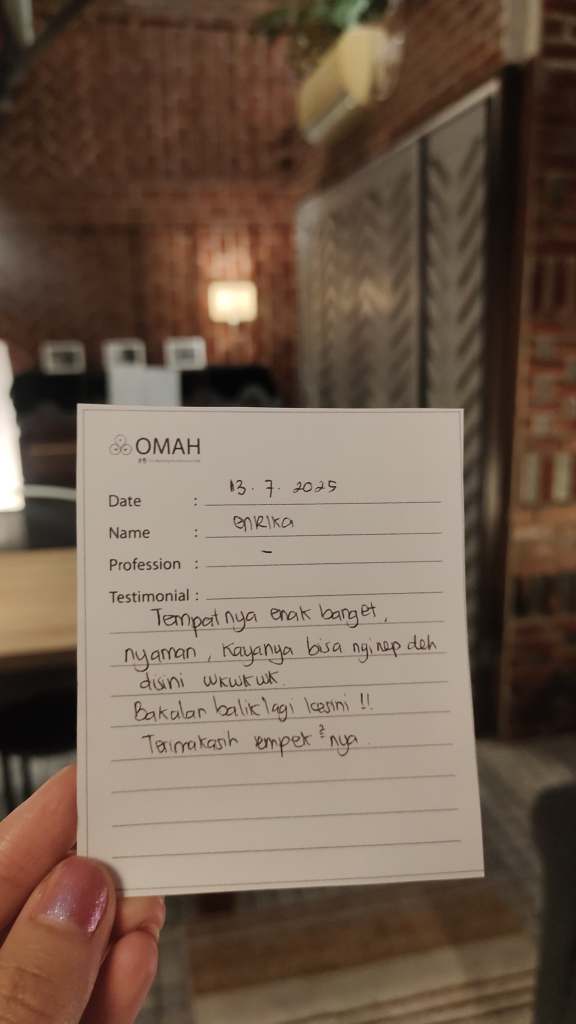 OMAH
Date : 13. 7. 2025
Name : enRIKa
Profession : -
Testimonial :
Tempatnya enak banget,
nyaman, kayanya bisa nginep deh
disini wkwkwk.
Bakalan balik lagi kesini !!
Terimakasih empek²nya.